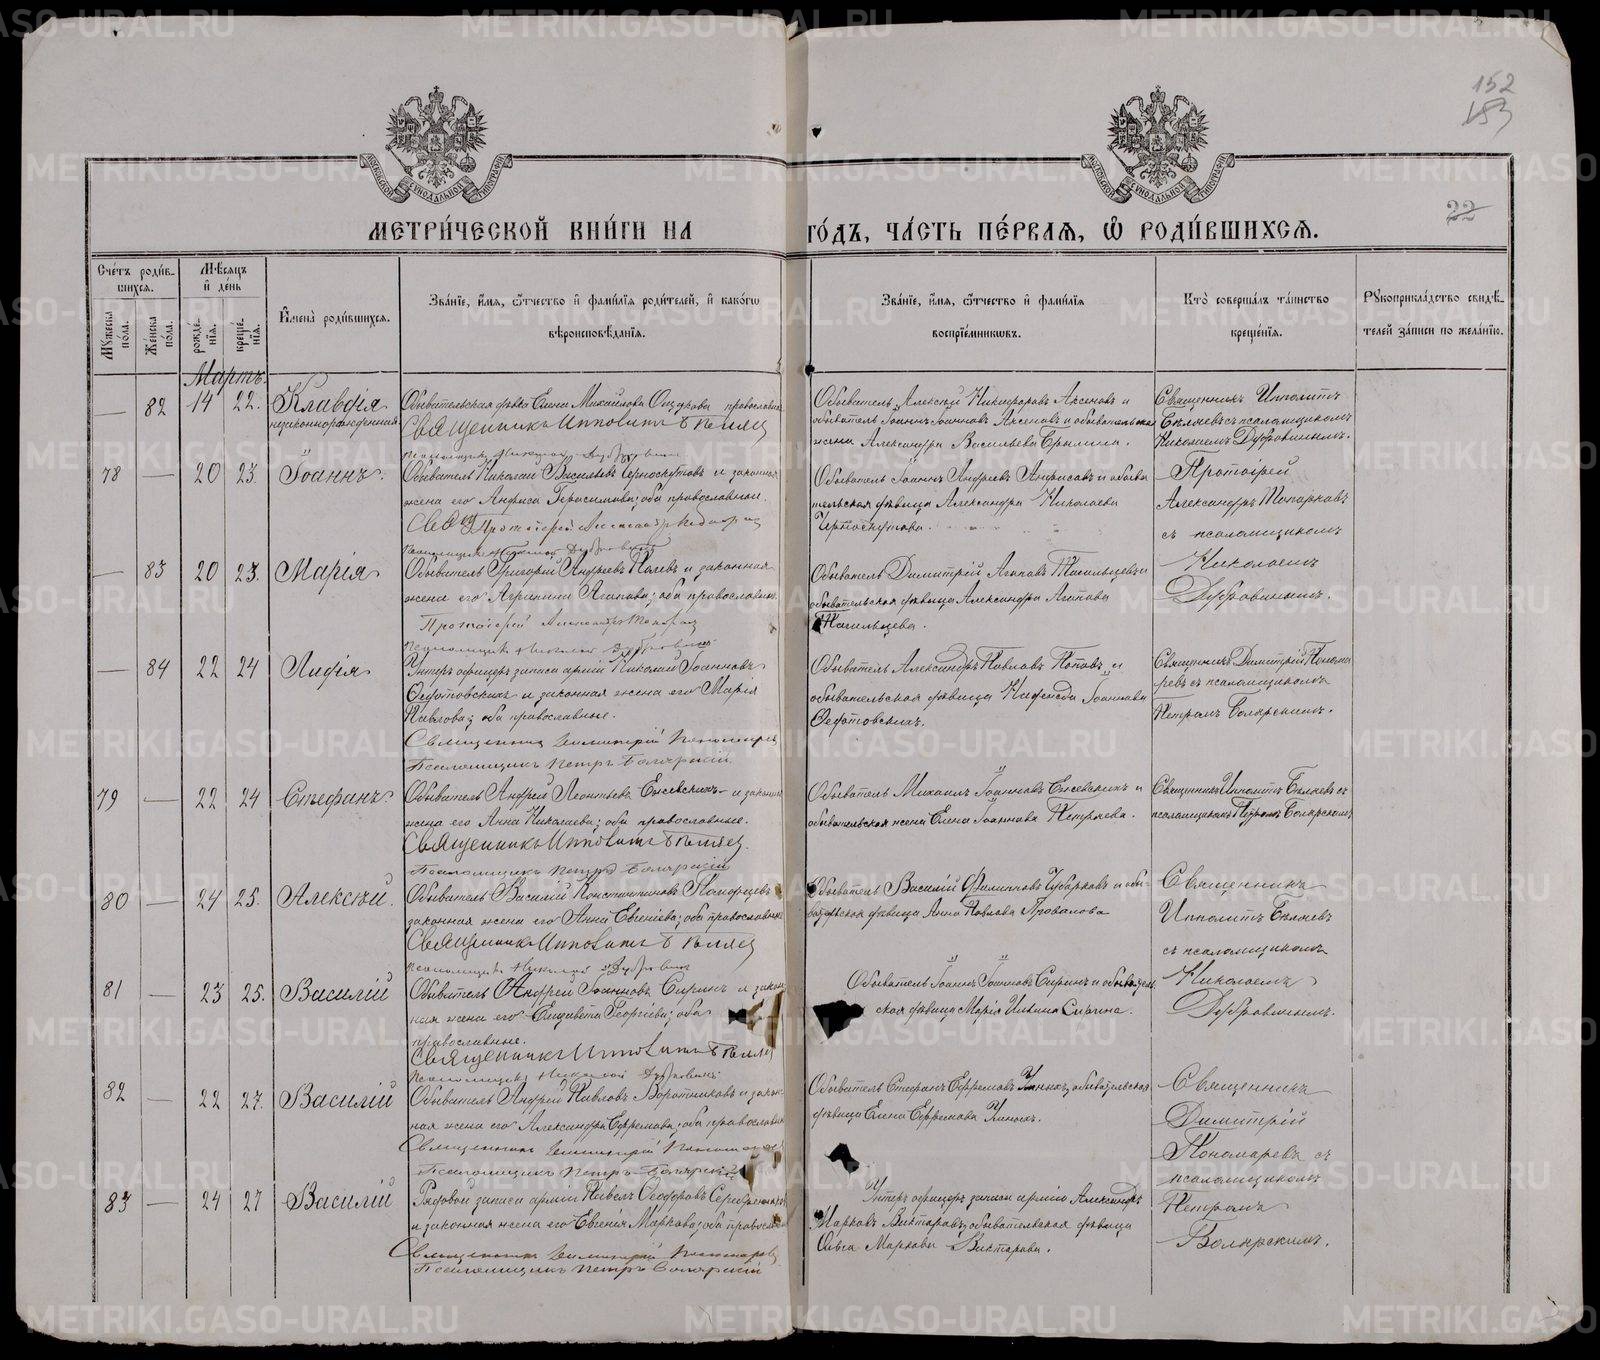 152
153
МОСКОВСКОЙ СѴНОДАЛЬНОЙ ТИПОГРАФІИ
МОСКОВСКОЙ СѴНОДАЛЬНОЙ ТИПОГРАФІИ
22
МЕТРИ́ЧЕСКОЙ КНИ́ГИ НА ГО́ДЪ, ЧА́СТЬ ПЕ́РВАѦ, Ѡ҆ РОДИ́ВШИХСѦ.
Сче́тъ роди́вшихсѧ.
Мꙋ́жеска по́ла.
Же́нска по́ла.
Мѣ́сѧцъ и҆ де́нь
рожде́нїѧ.
креще́нїѧ.
И҆мена̀ роди́вшихсѧ.
Зва́нїе, и҆́мѧ, ѻ҆́тчество и҆ фами́лїѧ роди́телей, и҆ како́гѡ вѣроисповѣ́данїѧ.
Зва́нїе, и҆́мѧ, ѻ҆́тчество и҆ фами́лїѧ воспрїе́мниковъ.
Кто̀ соверша́лъ та́инство креще́нїѧ.
Рꙋкоприкла́дство свидѣ́телей за́писи по жела́нїю.
Мартъ.
— 82 14 22. Клавдія незаконнорожденная
Обывательская дѣвка Елена Михайлова православная
Священникъ Ипполитъ Бѣляев
Псаломщикъ Николай Дубровинъ
Обыватель Алексѣй Никифоровъ Аксеновъ и
обыватель Іоаннъ Іоанновъ Аксеновъ и обывательская
жена Александра Васильева
Священникъ Ипполитъ
Бѣляевъ съ псаломщикомъ
Николаемъ Дубровинымъ.
78 — 20 23. Іоаннъ.
Обыватель Николай Васильевъ Черноскутовъ и законная
жена его Анфиса Герасимова; оба православные.
Протоіерей Александръ
Псаломщикъ Николай Дубровинъ
Обыватель Іоаннъ Андреевъ и обыва
тельская дѣвица Александра Николаева
Черноскутова.
Протоіерей
Александръ Топорковъ
съ псаломщикомъ
Николаемъ
Дубровинымъ.
— 83 20 23. Марія
Обыватель Григорій Андреевъ и законная
жена его Агрипина Агапова; оба православные.
Протоіерей Александръ
Псаломщикъ Николай Дубровинъ
Обыватель Димитрій Агаповъ Тагильцевъ и
обывательская дѣвица Александра Агапова
Тагильцева.
— 84 22 24 Лидія
Унтеръ офицеръ запаса арміи Николай Іоанновъ
Ѳедотовскихъ и законная жена его Марія
Павлова; оба православные.
Священникъ Димитрій Пономаревъ
Псаломщикъ Петръ Боярскій
Обыватель Александръ Павловъ Поповъ и
обывательская дѣвица Іоаннова
Ѳедотовскихъ.
Священникъ Димитрій Понома
ревъ съ псаломщикомъ
Петромъ Боярскимъ.
79 — 22 24 Стефанъ
Обыватель Андрей Леонтьевъ и законная
жена его Анна Николаева; оба православные.
Священникъ Ипполитъ Бѣляев
Псаломщикъ Петръ Боярскій
Обыватель Михаилъ Іоанновъ и
обывательская жена Елена Іоаннова
Священникъ Ипполитъ Бѣляевъ съ
псаломщикомъ Петромъ Боярскимъ
80 — 24 25. Алексѣй.
Обыватель Василій Константиновъ и
законная жена его Анна Евгеніева; оба православные
Священникъ Ипполитъ Бѣляев
Псаломщикъ Николай Дубровинъ
Обыватель Василій Чубарковъ и обы-
вательская дѣвица Анна Павлова
Священникъ
Ипполитъ Бѣляевъ
съ псаломщикомъ
Николаемъ
Дубровинымъ.
81 — 23 25. Василій
Обыватель Андрей Іоанновъ Сиринъ и закон
ная жена его Елизавета Георгіева; оба
православные.
Священникъ Ипполитъ Бѣляев
Псаломщикъ Николай Дубровинъ
Обыватель Іоаннъ Іоанновъ Сиринъ и обыватель
ская дѣвица Марія Ильина Сирина.
82 — 22 27. Василій
Обыватель Андрей Павловъ Воротниковъ и закон-
ная жена его Александра Ефремова; оба православные
Священникъ Димитрій Пономаревъ
Псаломщикъ Петръ Боярскій
Обыватель Стефанъ Ефремовъ и обывательская
дѣвица Елена Ефремова
Священникъ
Димитрій
Пономаревъ съ
псаломщикомъ
Петромъ
Боярскимъ.
83 — 24 27 Василій
Рядовой запаса арміи Павелъ Ѳеодоровъ
и законная жена его Евгенія Маркова; оба православные
Священникъ Димитрій Пономаревъ
Псаломщикъ Петръ Боярскій
Унтеръ офицеръ запаса арміи Александръ
Марковъ и обывательская дѣвица
Ольга Маркова
METRIKI.GASO-URAL.RU